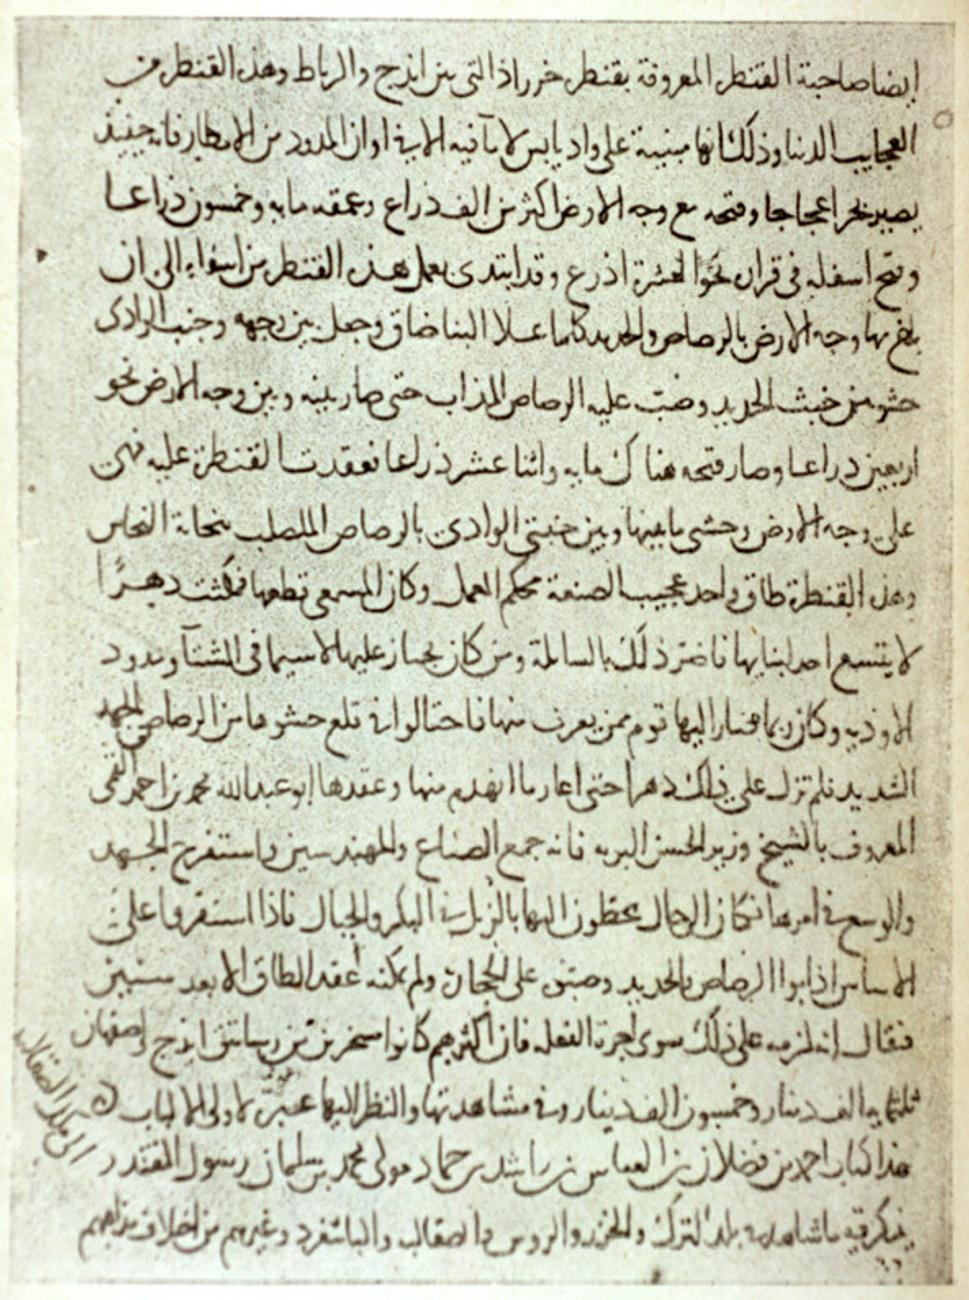 ايضا صاحبة القنطره المعروفة بقنطره خرراذ التى بين ايذج والرباط وهذه القنطره من
العجايب الدنيا وذلك انها مبنية على واد يابس لا مآ فيه الا فى اوان المدود من الامطار فانه حينيذ
يصير بحرا عجاجا وفتحه مع وجه الارض اكثر من الف ذراع وعمقه مايه وخمسون ذراعا
وفتح اسفله فى قراره نحوا لعشرة اذرع وقد ابتدى بعمل هذه القنطره من اسفله الى ان
بلغ بها وجه الارض بالرصاص والحديد كلما علا البنا ضاق وجعل بين وجهه وجنب الوادى
حشو من خبث الحديد وصب عليه الرصاص المذاب حتى صار بينه وبين وجه الارض نحو
اربعين ذراعا وصار فتحه هناك مايه واثنا عشر ذراعا فعقدت القنطرة عليه فهى
على وجه الارض وحشى ما بينها وبين جنبتى الوادى بالرصاص الملصلب بنحاتة النحاس
وهذه القنطرة طاق واحد عجيب الصنعة محكم العمل وكان المسمعى قطعها فمكثت دهرًا
لا يتسع احد لبنايها فاضر ذلك بالسابلة ومن كان يجتاز عليها لا سيما فى الشتآ ومدود
الاوديه وكان ربما صار اليها قوم ممن يعرف منها فاحتالوا فى قلع حشوها من الرصاص بالجهد
الشديد فلم تزل على ذلك دهرا حتى اعاد ما انهدم منها وعقدها ابو عبد الله محمد بن احمد القمى
المعروف بالشيخ وزير الحسن البويه فانه جمع الصناع والمهندسين واستفرغ الجهد
والوسع فى امرها فكان الرجال يحطون اليها بالزبل فى البكر والحبال فاذا استقروا على
الاساس اذابوا الرصاص والحديد وصبوه على الحجارة ولم يمكنه عقد الطاق الا بعد سنين
فيقال انه لزمه على ذلك سوى اجرة الفعله فان اكثرهم كانوا مسخرين من رساتيق ايذج واصفهان
ثلثمايه الف دينار وخمسون الف دينار وفى مشاهدتها والنظر اليها عبرة لاولى الالباب
هذا كتاب احمد بن فضلان بن العباس بن راشد بن حماد مولى محمد بن سليمان رسول المقتدر
الى ملك الصقالبه
يذكر فيه ما شاهد من بلد الترك والخزر والروس والصقالبه والباشغرد وغيرهم من اختلاف مذاهبهم